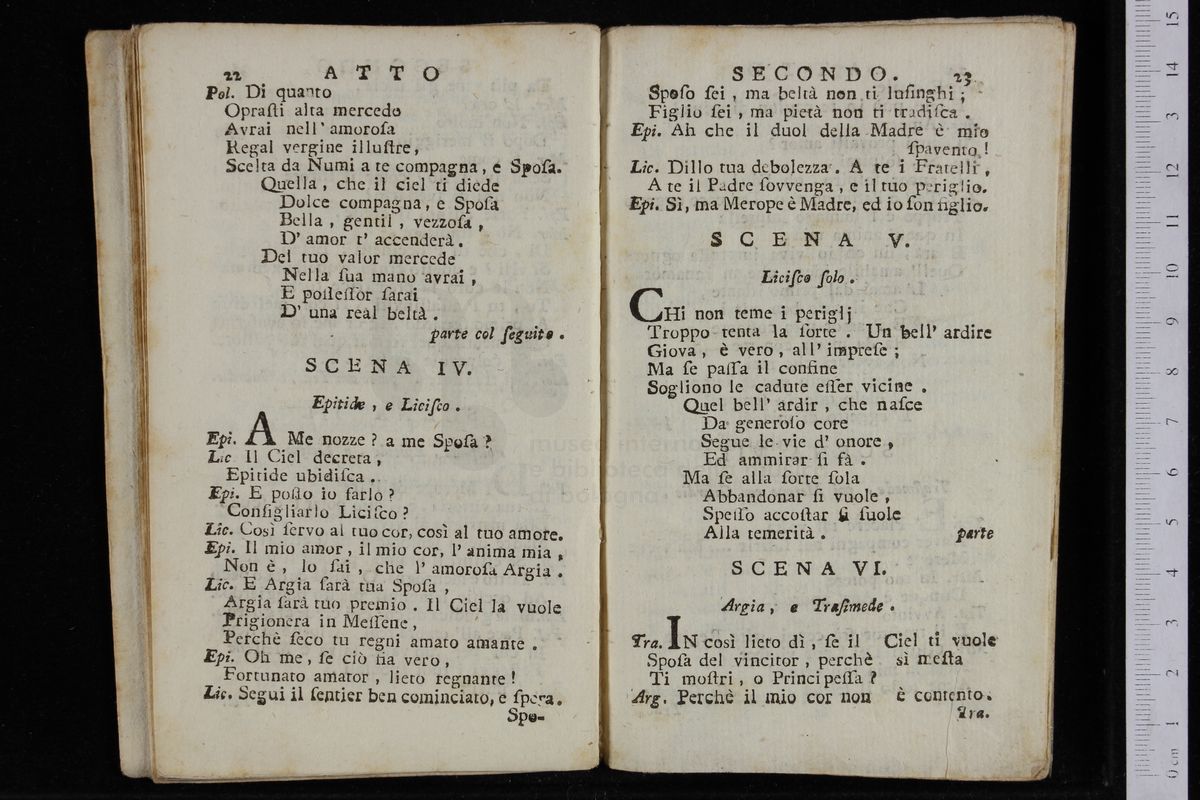 22 ATTO
Pol. Di quanto
Opraſti alta mercede
Avrai nell' amoroſa
Regal vergine illuſtre,
Scelta da Numi a te compagna, e Spoſa.
Quella, che il ciel ti diede
Dolce compagna, e Spoſa
Bella, gentil, vezzoſa,
D' amor t' accenderà.
Del tuo valor mercede
Nella ſua mano avrai,
E poſſeſſor ſarai
D' una real beltà.
parte col ſeguito.
SCENA IV.
Epitide, e Liciſco.
Epi. A Me nozze? a me Spoſa?
Lic Il Ciel decreta,
Epitide ubidiſca.
Epi. E poſſo io farlo?
Conſigliarlo Liciſco?
Lic. Così ſervo al tuo cor, così al tuo amore.
Epi. Il mio amor, il mio cor, l' anima mia,
Non è, lo ſai, che l' amoroſa Argia.
Lic. E Argia ſarà tua Spoſa,
Argia ſarà tuo premio. Il Ciel la vuole
Prigionera in Meſſene,
Perchè ſeco tu regni amato amante.
Epi. Oh me, ſe ciò fia vero,
Fortunato amator, lieto regnante!
Lic. Segui il ſentier ben cominciato, e ſpera.
Spo-
SECONDO. 23
Spoſo ſei, ma beltà non ti luſinghi;
Figlio ſei, ma pietà non ti tradiſca.
Epi. Ah che il duol della Madre è mio
ſpavento!
Lic. Dillo tua debolezza. A te i Fratelli,
A te il Padre ſovvenga, e il tuo periglio.
Epi. Sì, ma Merope è Madre, ed io ſon figlio.
SCENA V.
Liciſco ſolo.
CHi non teme i periglj
Troppo tenta la ſorte. Un bell' ardire
Giova, è vero, all' impreſe;
Ma ſe paſſa il confine
Sogliono le cadute eſſer vicine.
Quel bell' ardir, che naſce
Da generoſo core
Segue le vie d' onore,
Ed ammirar ſi fà.
Ma ſe alla ſorte ſola
Abbandonar ſi vuole,
Speſſo accoſtar ſi ſuole
Alla temerità. parte
SCENA VI.
Argia, e Traſimede.
Tra. IN così lieto dì, ſe il Ciel ti vuole
Spoſa del vincitor, perchè sì meſta
Ti moſtri, o Principeſſa?
Arg. Perchè il mio cor non è contento.
Tra.